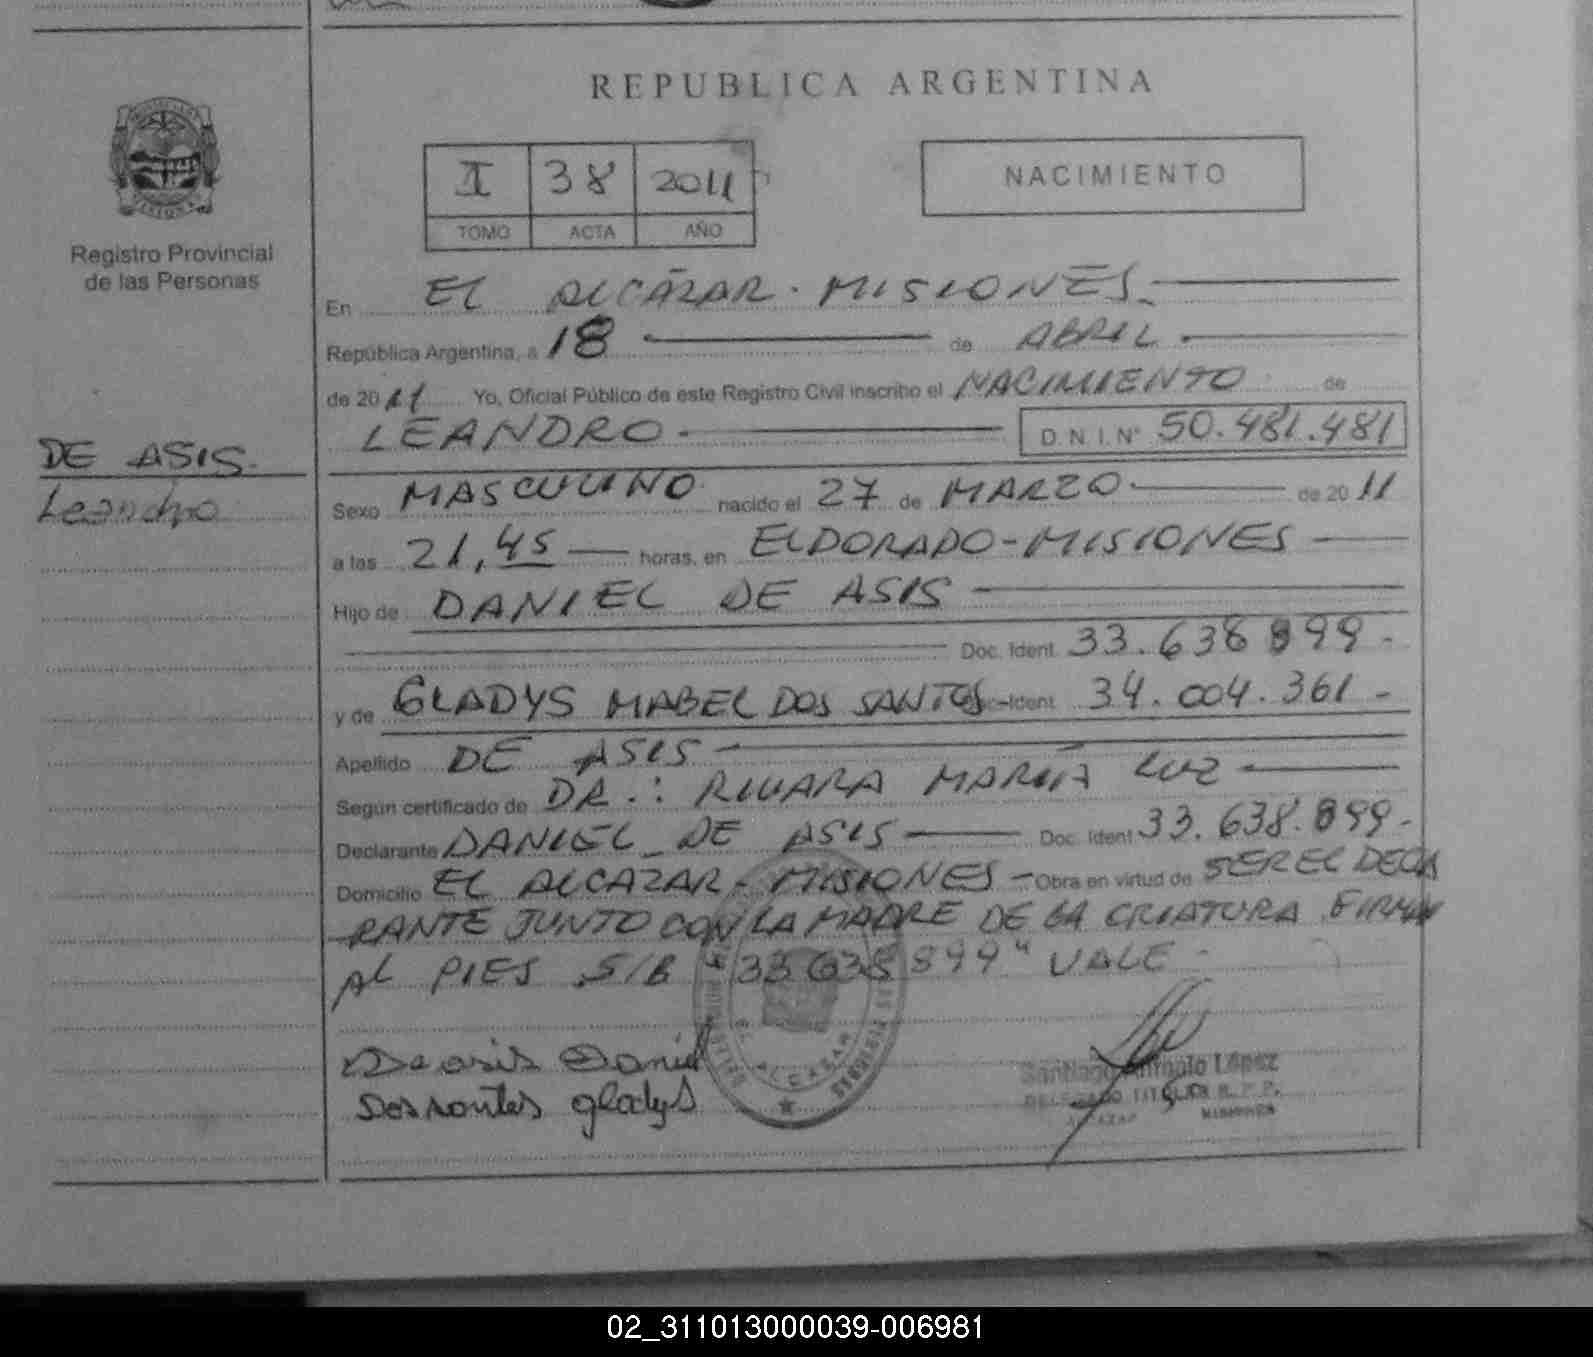 REPUBLICA ARGENTINA
I 38 2011
TOMO ACTA AÑO
NACIMIENTO
Registro Provincial
de las Personas
En EL ALCÁZAR - MISIONES.
República Argentina, a 18 de ABRIL
de 2011 Yo, Oficial Público de este Registro Civil inscribo el NACIMIENTO de
LEANDRO D.N.I.Nº 50.481.481
DE ASIS.
Leandro
Sexo MASCULINO nacido el 27 de MARZO de 2011
a las 21,45 horas, en ELDORADO-MISIONES
Hijo de DANIEL DE ASIS
Doc. Ident. 33.638 899-
y de GLADYS MABEL DOS SANTOS Doc-Ident. 34.004.361-
Apellido DE ASIS
Según certificado de DR.: RIVARA MARIA LUZ
Declarante DANIEL DE ASIS Doc. Ident. 33.638.899-
Domicilio EL ALCAZAR - MISIONES - Obra en virtud de SER EL DECLA
RANTE JUNTO CON LA MADRE DE LA CRIATURA FIRMAN
AL PIES S/B "33 638 899" VALE-
De asis Daniel
Dos santos gladys
EL ALCAZAR
Santiago Antonio López
DELEGADO TITULAR R. P. P.
ALCAZAR MISIONES
02_311013000039-006981